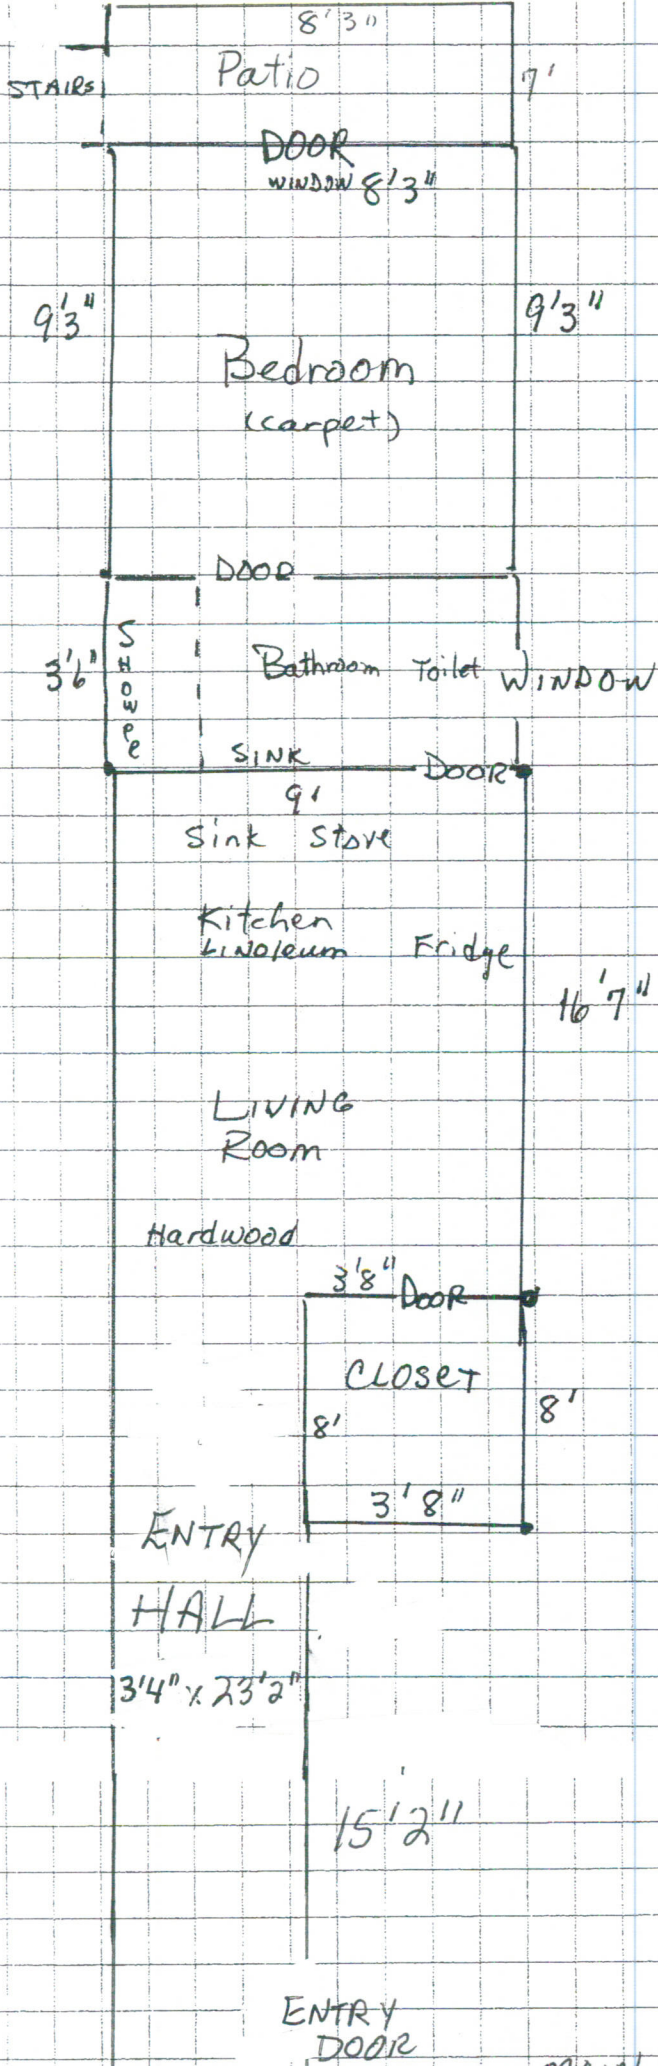 8'3"
Patio
7'
STAIRS
DOOR
WINDOW 8'3"
9'3"
9'3"
Bedroom
(carpet)
DOOR
SHOWER
3'6"
Bathroom Toilet WINDOW
SINK
DOOR
9'
Sink Stove
Kitchen
LINOLEUM Fridge
16'7"
LIVING
Room
Hardwood
3'8" DOOR
CLOSET
8'
8'
3'8"
ENTRY
HALL
3'4" x 23'2"
15'2"
ENTRY
DOOR